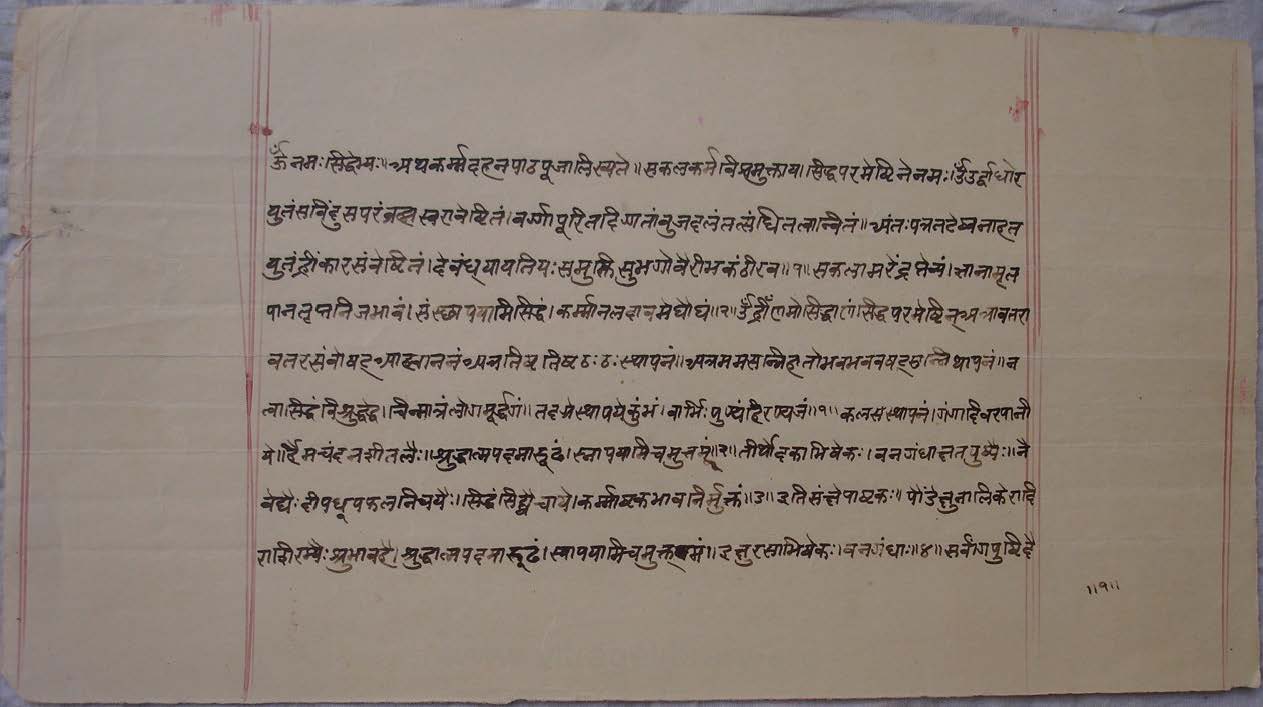 ॐ नमः सिद्धेभ्यः॥ अथ कर्म्मदहनपाठपूजा लिख्यते॥ सकलकर्मविप्रमुक्ताय। सिद्धपरमेष्टिने नमः। ॐ उर्द्धाधोर
युतं सबिंदु सपरं ब्रह्मस्वरावेष्टितं। वर्ग्गापूरितदिग्गतांबुजदलं तत्संधितत्वान्वितं॥ अंतःपत्रतटेष्वनाहत
युतं ह्रींकारसंवेष्टितं। देवं ध्यायति यः सुमुक्तिसुभगो वैरीभकंठीरव॥१॥ सकलामरेंद्रसेव्यं। ज्ञानामृत
पानतृप्तनिजभावं। संस्छापयामि सिद्धं। कर्म्मानलदावमेघौघं॥२॥ ॐ ह्रीँ णमो सिद्धाणं। सिद्धपरमेष्टिन् अत्रावतरा
वतर संवोषट् आह्वाननं अत्र तिष्ट तिष्ट ठः ठः स्थापनं॥ अत्र मम सन्निहतो भव भव वषट्
त्वा सिद्धं विशुद्धेद्ध। चिन्मात्रं लोगमूर्द्धगं॥ तदग्रे स्थापये कुंभं। वार्भिः पुण्यं हिरण्यजं॥१॥ कलसस्थापनं। गंगादिवरपानी
यै। र्हैमचंदनशीतलैः॥ शुद्धात्मपदमारूढं। स्नापयामि चमुत्तमं॥२॥ तीर्थोदकाभिषेकः। वनगंधाक्षतपुष्पैः॥ नै
वेद्यैः दीपधूपफलनिचयैः। सिद्धं सिद्ध्यै चाये। कर्म्माष्टकभावनिर्मुक्तं॥३॥ इति संक्षेपाष्टकः॥ पौंडेक्षुनालिकेरादि
शुभावहै। शुद्धात्मपदमारूढं। स्नापयामि इक्षुरसाभिषेकः। वनगंधाः॥४॥
॥१॥